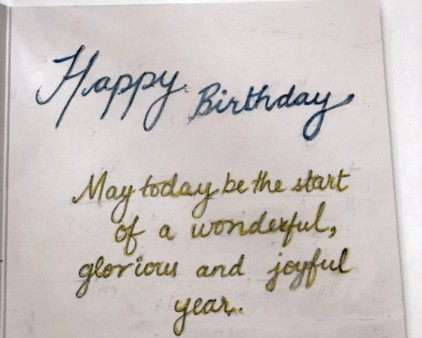 Happy Birthday
May today be the start
of a wonderful,
glorious and joyful
year..